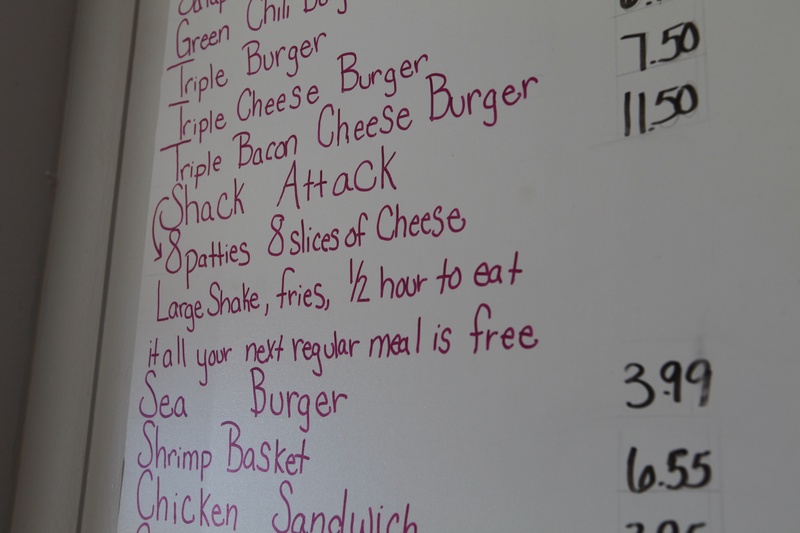 Green Chili
Triple Burger
Triple Cheese Burger 7.50
Triple Bacon Cheese Burger 11.50
Shack Attack
8 patties 8 slices of Cheese
Large Shake, fries, 1/2 hour to eat
it all your next regular meal is free
Sea Burger 3.99
Shrimp Basket 6.55
Chicken Sandwich